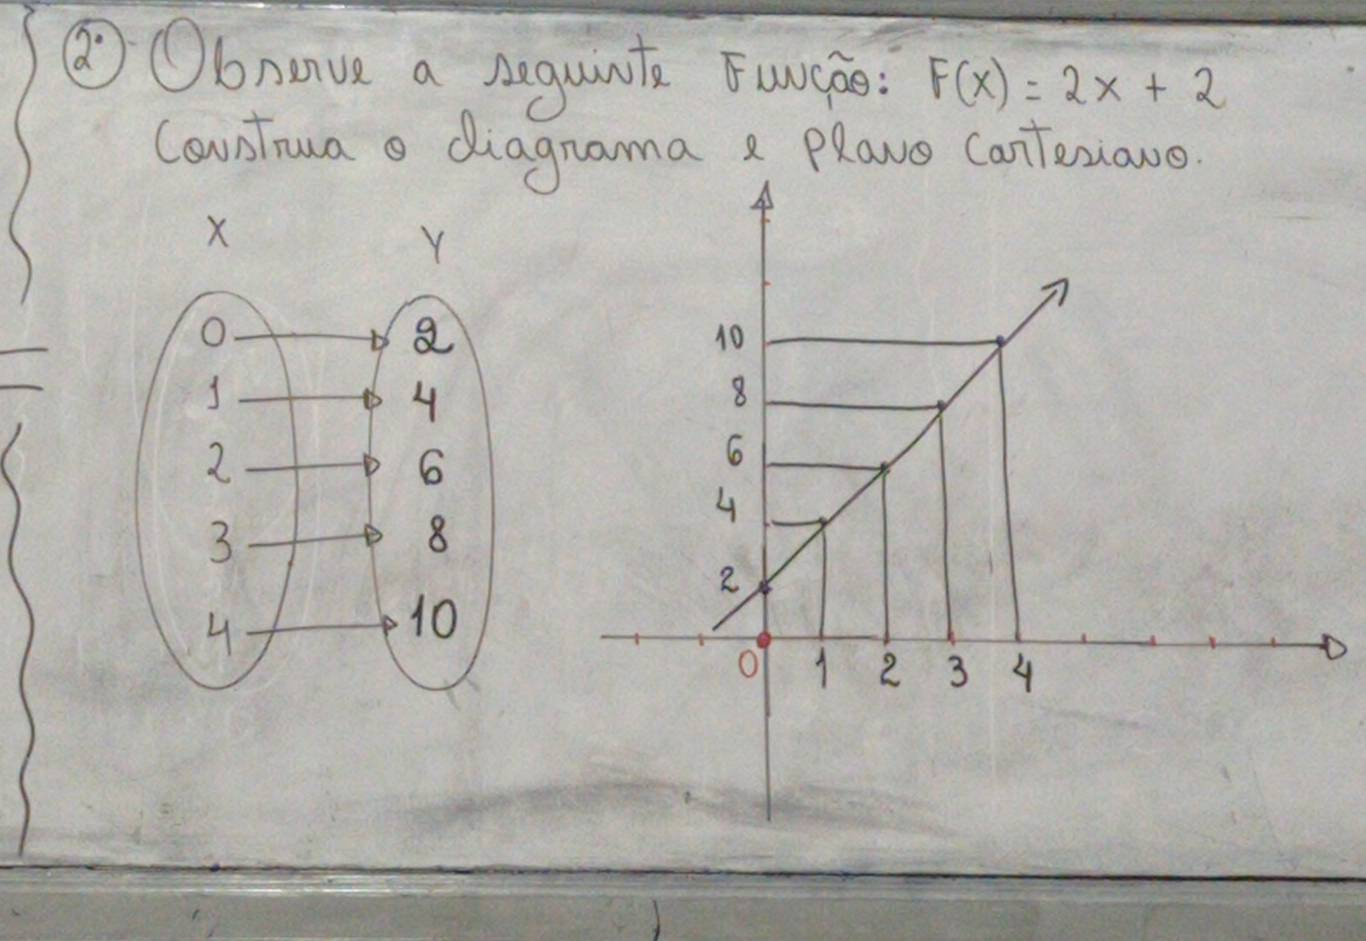 2ª Observe a seguinte Função: F(x) = 2x + 2
Construa o diagrama e plano cartesiano.
X Y
0 2
1 4
2 6
3 8
4 10
10
8
6
4
2
0 1 2 3 4